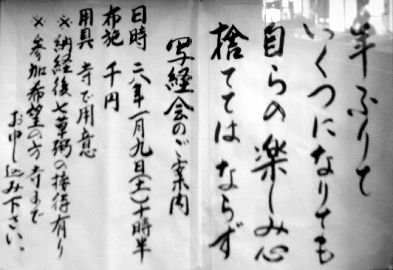 年ふりて
いくつになりても
自らの楽しみ心
捨ててはならず
写経会のご案内
日時 二八年一月九日(土)十時半
布施 千円
用具 寺で用意
※納経後七草粥の接待有り
※参加希望の方寺まで
お申し込み下さい。